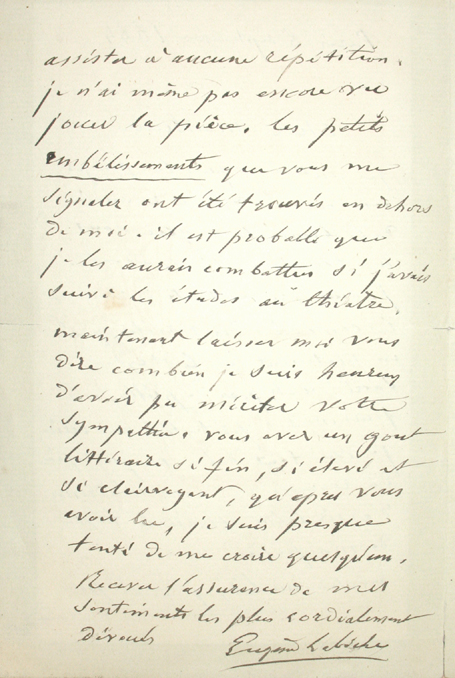 assister à aucune répétition.
je n'ai même pas encore vu
jouer la pièce. les petits
embélissements que vous me
signalez ont été trouvés en dehors
de moi. il est probable que
je les aurais combattus si j'avais
suivi les études au théâtre.
maintenant laissez moi vous
dire combien je suis heureux
d'avoir pu mériter votre
sympathie. vous avez un gout
littéraire si fin, si élevé et
si clairvoyant, qu'après vous
avoir lu, je suis presque
tenté de me croire quelqu'un.
Recevez l'assurance de mes
sentiments les plus cordialement
dévoués
Eugène Labiche